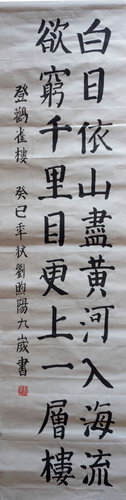 白日依山盡黃河入海流
欲窮千里目更上一層樓
登鸛雀樓 癸巳年秋劉煦陽九歲書